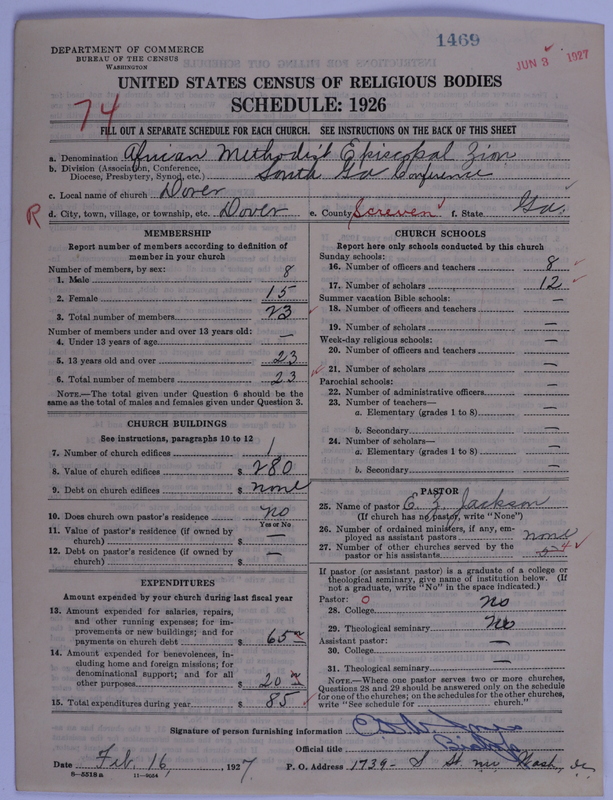 1469
JUN 3 1927
DEPARTMENT OF COMMERCE
BUREAU OF THE CENSUS
WASHINGTON
UNITED STATES CENSUS OF RELIGIOUS BODIES
SCHEDULE: 1926
74
FILL OUT A SEPARATE SCHEDULE FOR EACH CHURCH. SEE INSTRUCTIONS ON THE BACK OF THIS SHEET
a. Denomination African Methodist Episcopal Zion
b. Division (Association, Conference, Diocese, Presbytery, Synod, etc.) South Ga Conference
c. Local name of church Dover
R d. City, town, village, or township, etc. Dover e. County Screven f. State Ga.
MEMBERSHIP
Report number of members according to definition of member in your church
Number of members, by sex:
1. Male 8
2. Female 15
3. Total number of members 23
Number of members under and over 13 years old:
4. Under 13 years of age —
5. 13 years old and over 23
6. Total number of members 23
NOTE.—The total given under Question 6 should be the same as the total of males and females given under Question 3.
CHURCH BUILDINGS
See instructions, paragraphs 10 to 12
7. Number of church edifices 1
8. Value of church edifices $ 280
9. Debt on church edifices $ none
10. Does church own pastor's residence no
Yes or No
11. Value of pastor's residence (if owned by church) $ —
12. Debt on pastor's residence (if owned by church) $ —
EXPENDITURES
Amount expended by your church during last fiscal year
13. Amount expended for salaries, repairs, and other running expenses; for improvements or new buildings; and for payments on church debt $ 65
14. Amount expended for benevolences, including home and foreign missions; for denominational support; and for all other purposes $ 20
15. Total expenditures during year $ 85
CHURCH SCHOOLS
Report here only schools conducted by this church
Sunday schools:
16. Number of officers and teachers 8
17. Number of scholars 12
Summer vacation Bible schools:
18. Number of officers and teachers —
19. Number of scholars —
Week-day religious schools:
20. Number of officers and teachers —
21. Number of scholars —
Parochial schools:
22. Number of administrative officers —
23. Number of teachers—
a. Elementary (grades 1 to 8) —
b. Secondary —
24. Number of scholars—
a. Elementary (grades 1 to 8) —
b. Secondary —
PASTOR
25. Name of pastor E. Z. Jackson
(If church has no pastor, write "None")
26. Number of ordained ministers, if any, employed as assistant pastors none
27. Number of other churches served by the pastor or his assistants 4
If pastor (or assistant pastor) is a graduate of a college or theological seminary, give name of institution below. (If not a graduate, write "No" in the space indicated.)
Pastor: 0
28. College no
29. Theological seminary no
Assistant pastor:
30. College —
31. Theological seminary —
NOTE.—Where one pastor serves two or more churches, Questions 28 and 29 should be answered only on the schedule for one of the churches; on the schedules for the other churches, write "See schedule for church."
Signature of person furnishing information
Official title Bishop
Date Feb. 16, 1927 P. O. Address 1739- S St nw Wash, dc
8—5518a 11—9034